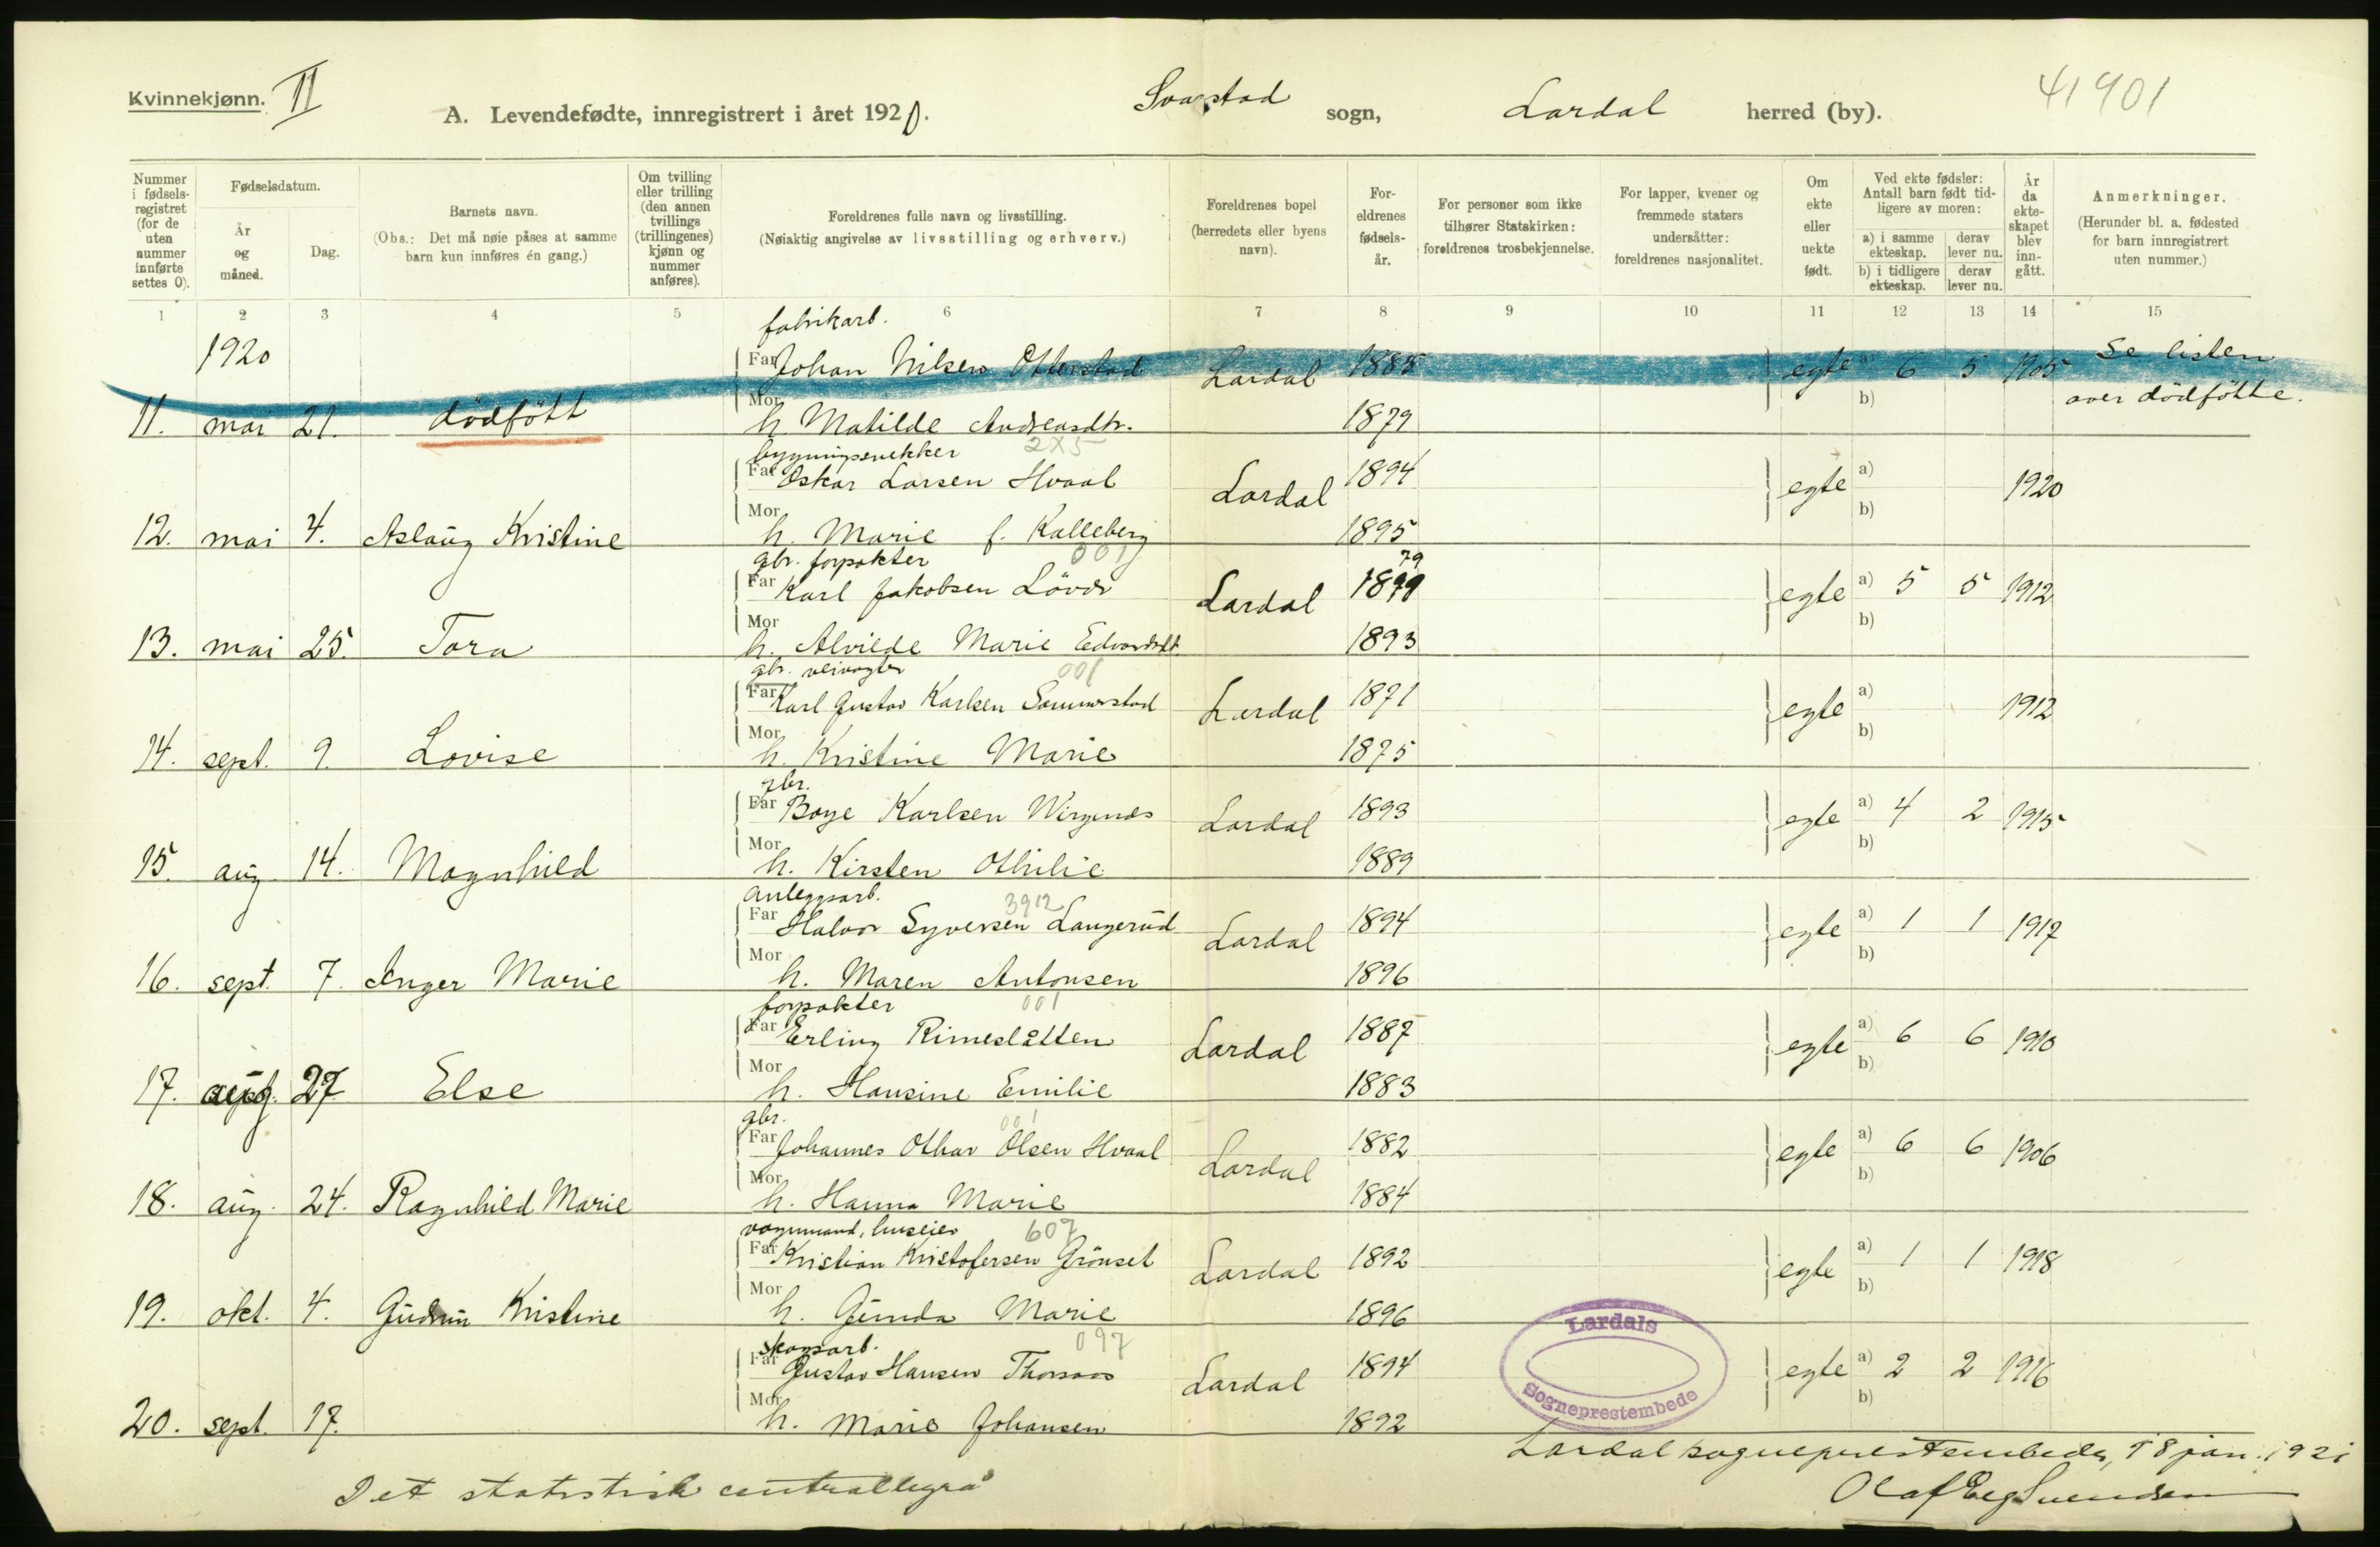 Kvinnekjønn. II
A. Levendefødte, innregistrert i året 1920. Svarstad sogn, Lardal herred (by). 41901
Nummer i fødsels-registret (for de uten nummer innførte settes 0).
Fødselsdatum.
År og måned.
Dag.
Barnets navn.
(Obs.: Det må nøie påses at samme barn kun innføres én gang.)
Om tvilling eller trilling (den annen tvillings (trillingenes) kjønn og nummer anføres).
Foreldrenes fulle navn og livsstilling.
(Nøiaktig angivelse av livsstilling og erhverv.)
Foreldrenes bopel (herredets eller byens navn).
For-eldrenes fødsels-år.
For personer som ikke tilhører Statskirken: foreldrenes trosbekjennelse.
For lapper, kvener og fremmede staters undersåtter: foreldrenes nasjonalitet.
Om ekte eller uekte født.
Ved ekte fødsler: Antall barn født tid-ligere av moren:
a) i samme ekteskap. derav lever nu.
b) i tidligere ekteskap. derav lever nu.
År da ekte-skapet blev inn-gått.
Anmerkninger.
(Herunder bl. a. fødested for barn innregistrert uten nummer.)
1 2 3 4 5 6 7 8 9 10 11 12 13 14 15
1920
fabrikarb.
Far Johan Nilsen Otterstad Lardal 1885 egte a) 6 5 1905 Se listen
11. mai 21. dödfött Mor h. Matilde Andreasdtr. 1879 b) over dödfötte.
bygningssnekker 2X5
Far Oskar Larsen Hvaal Lardal 1894 egte a) 1920
12. mai 4. Aslaug Kristine Mor h. Marie f. Kalleberg 1895 b)
gbr. forpakter 001
Far Karl Jakobsen Lövås Lardal 1879 79 egte a) 5 5 1912
13. mai 25. Tora Mor h. Alvilde Marie Edvardsdt. 1893 b)
gbr. veivogter 001
Far Karl Gustav Karlsen Sommerstad Lardal 1871 egte a) 1912
14. sept. 9. Lovise Mor h. Kristine Marie 1875 b)
gbr.
Far Boye Karlsen Lardal 1893 egte a) 4 2 1915
15. aug. 14. Magnhild Mor h. Kirsten Othilie 1889 b)
anleggsarb. 3912
Far Halvor Syversen Langerud Lardal 1894 egte a) 1 1 1917
16. sept. 7. Inger Marie Mor h. Maren Antonsen 1896 b)
forpakter 001
Far Erling Rimeslåtten Lardal 1887 egte a) 6 6 1910
17. 27 Else Mor h. Hansine Emilie 1883 b)
gbr. 001
Far Johannes Othar Olsen Hvaal Lardal 1882 egte a) 6 6 1906
18. aug. 24. Ragnhild Marie Mor h. Hanna Marie 1884 b)
vognmand, huseier 607
Far Kristian Kristofersen Grönset Lardal 1892 egte a) 1 1 1918
19. okt. 4. Gudrun Kristine Mor h. Gunda Marie 1896 b)
skogsarb. 097
Far Gustav Hansen Thorsaas Lardal 1894 egte a) 2 2 1916
20. sept. 17. Mor h. Marie Johansen 1892 b)
Lardals Sogneprestembede
Lardal sogneprestembede, 18 jan. 1921
Det statistisk centralbyrå
Olaf Eeg Svendsen